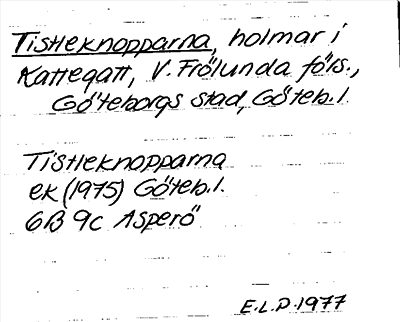 Tistleknopparna, holmar i
Kattegatt, V. Frölunda förs.,
Göteborgs stad, Göteb. l.
Tistleknopparna
ek (1975) Göteb. l.
6B 9c Asperö
E.L.P. 1977